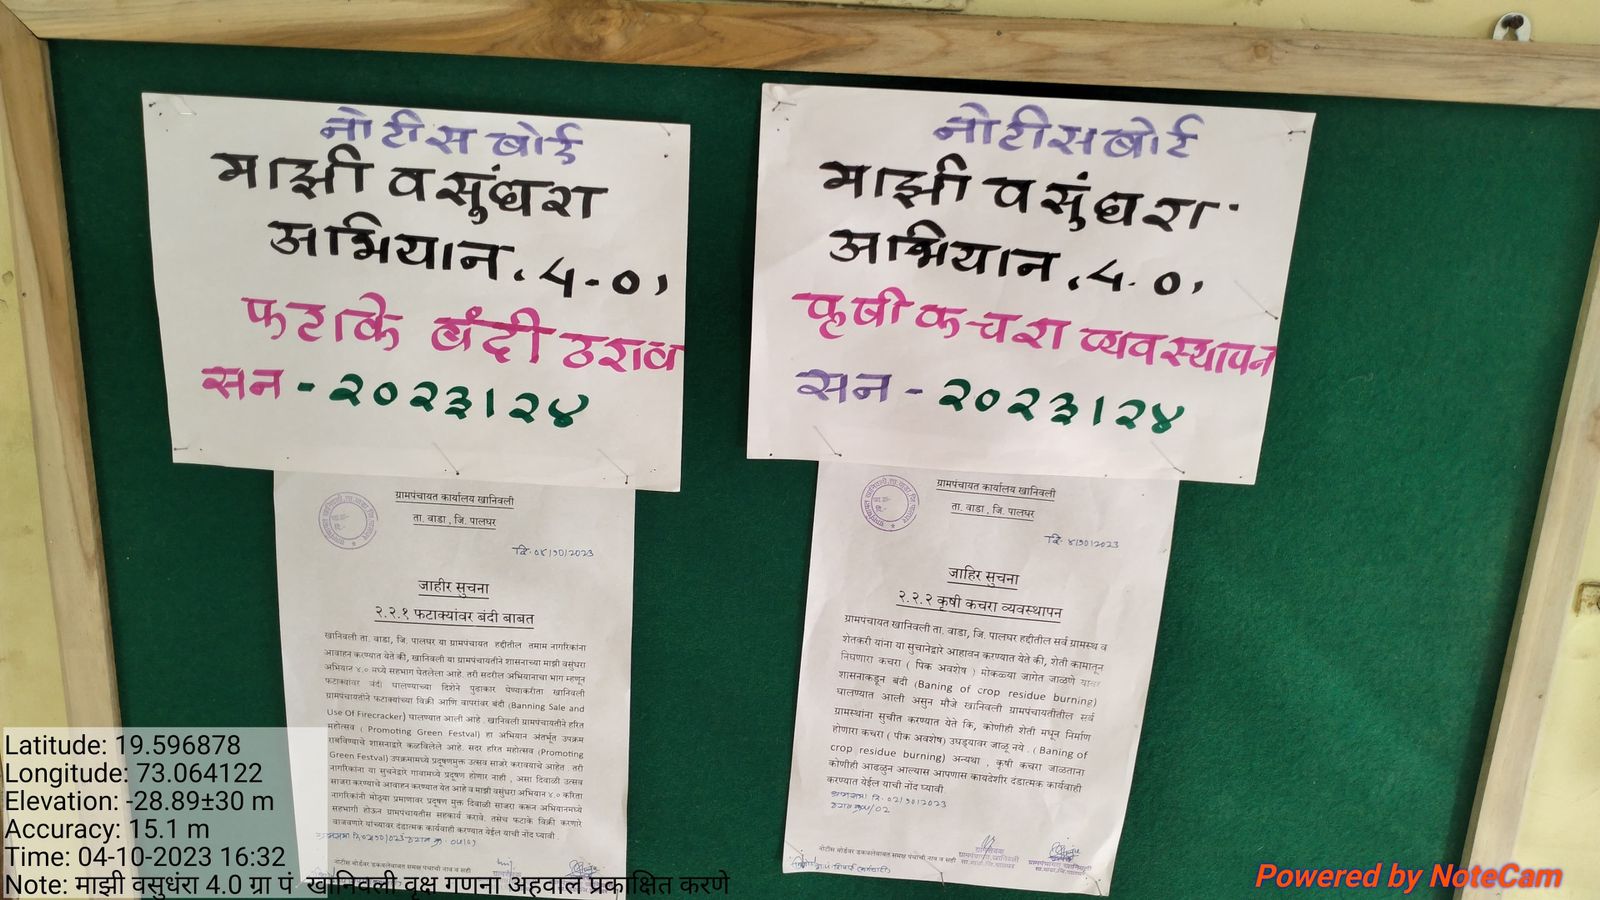 नोटीस बोर्ड
माझी वसुंधरा
अभियान. 4.0,
फटाके बंदी ठराव
सन - २०२३।२४
ग्रामपंचायत कार्यालय खानिवली
ता. वाडा , जि. पालघर
दि. ०४/१०/२०२३
जाहीर सुचना
२.२.१ फटाक्यांवर बंदी बाबत
खानिवली ता. वाडा, जि. पालघर या ग्रामपंचायत हद्दीतील तमाम नागरिकांना
आवाहन करण्यात येते की, खानिवली या ग्रामपंचायतीने शासनाच्या माझी वसुंधरा
अभियान ४.० मध्ये सहभाग घेतलेला आहे. तरी सदरील अभियानाचा भाग म्हणून
फटाक्यांवर बंदी घालण्याच्या दिशेने पुढाकार घेण्याकरीता खानिवली
ग्रामपंचायतीने फटाक्यांच्या विक्री आणि वापरांवर बंदी (Banning Sale and
Use Of Firecracker) घालण्यात आली आहे . खानिवली ग्रामपंचायतीने हरित
महोत्सव ( Promoting Green Festval) हा अभियान अंतर्भूत उपक्रम
राबविण्याचे शासनाद्वारे कळविलेले आहे. सदर हरित महोत्सव (Promoting
Green Festval) उपक्रमामध्ये प्रदूषणमुक्त उत्सव साजरे करावयाचे आहेत . तरी
नागरिकांना या सुचनेद्वारे गावामध्ये प्रदूषण होणार नाही , असा दिवाळी उत्सव
साजरा करण्याचे आवाहन करण्यात येत आहे व माझी वसुंधरा अभियान ४.० करिता
नागरिकांनी मोठ्या प्रमाणावर प्रदूषण मुक्त दिवाळी साजरा करून अभियानमध्ये
सहभागी होऊन ग्रामपंचायतीस सहकार्य करावे. तसेच फटाके विक्री करणारे
वाजवणारे यांच्यावर दंडात्मक कार्यवाही करण्यात येईल याची नोंद घ्यावी .
नोटीस बोर्डवर डकवलेबाबत समक्ष पंचांची नाव व सही
नोटीसबोर्ड
माझी वसुंधरा
अभियान. 4.0,
कृषी कचरा व्यवस्थापन
सन - २०२३।२४
ग्रामपंचायत कार्यालय खानिवली
ता. वाडा , जि. पालघर
दि. ४/१०/२०२३
जाहिर सुचना
२.२.२ कृषी कचरा व्यवस्थापन
ग्रामपंचायत खानिवली ता. वाडा, जि. पालघर हद्दीतील सर्व ग्रामस्थ व
शेतकरी यांना या सुचानेद्वारे आहावन करण्यात येते की, शेती कामातून
निघणारा कचरा ( पिक अवशेष ) मोकळ्या जागेत जाळणे यावर
शासनाकडून बंदी (Baning of crop residue burning)
घालण्यात आली असुन मौजे खानिवली ग्रामपंचायतीतील सर्व
ग्रामस्थांना सुचीत करण्यात येते कि, कोणीही शेती मधून निर्माण
होणारा कचरा ( पीक अवशेष) उघड्यावर जाळू नये . ( Baning of
crop residue burning) अन्यथा , कृषी कचरा जाळताना
कोणीही आढळुन आल्यास आपणास कायदेशीर दंडात्मक कार्यवाही
करण्यात येईल याची नोंद घ्यावी
ग्रामसभा दि. 02/90/2023
ठराव क्र 5/02
नोटीस बोर्डवर डकवलेबाबत समक्ष पंचांची नाव व सही
ग्रामपंचायत खानिवली
Latitude: 19.596878
Longitude: 73.064122
Elevation: -28.89±30 m
Accuracy: 15.1 m
Time: 04-10-2023 16:32
Note: माझी वसुधंरा 4.0 ग्रा पं खानिवली वृक्ष गणना अहवाल प्रकाक्षित करणे
Powered by NoteCam